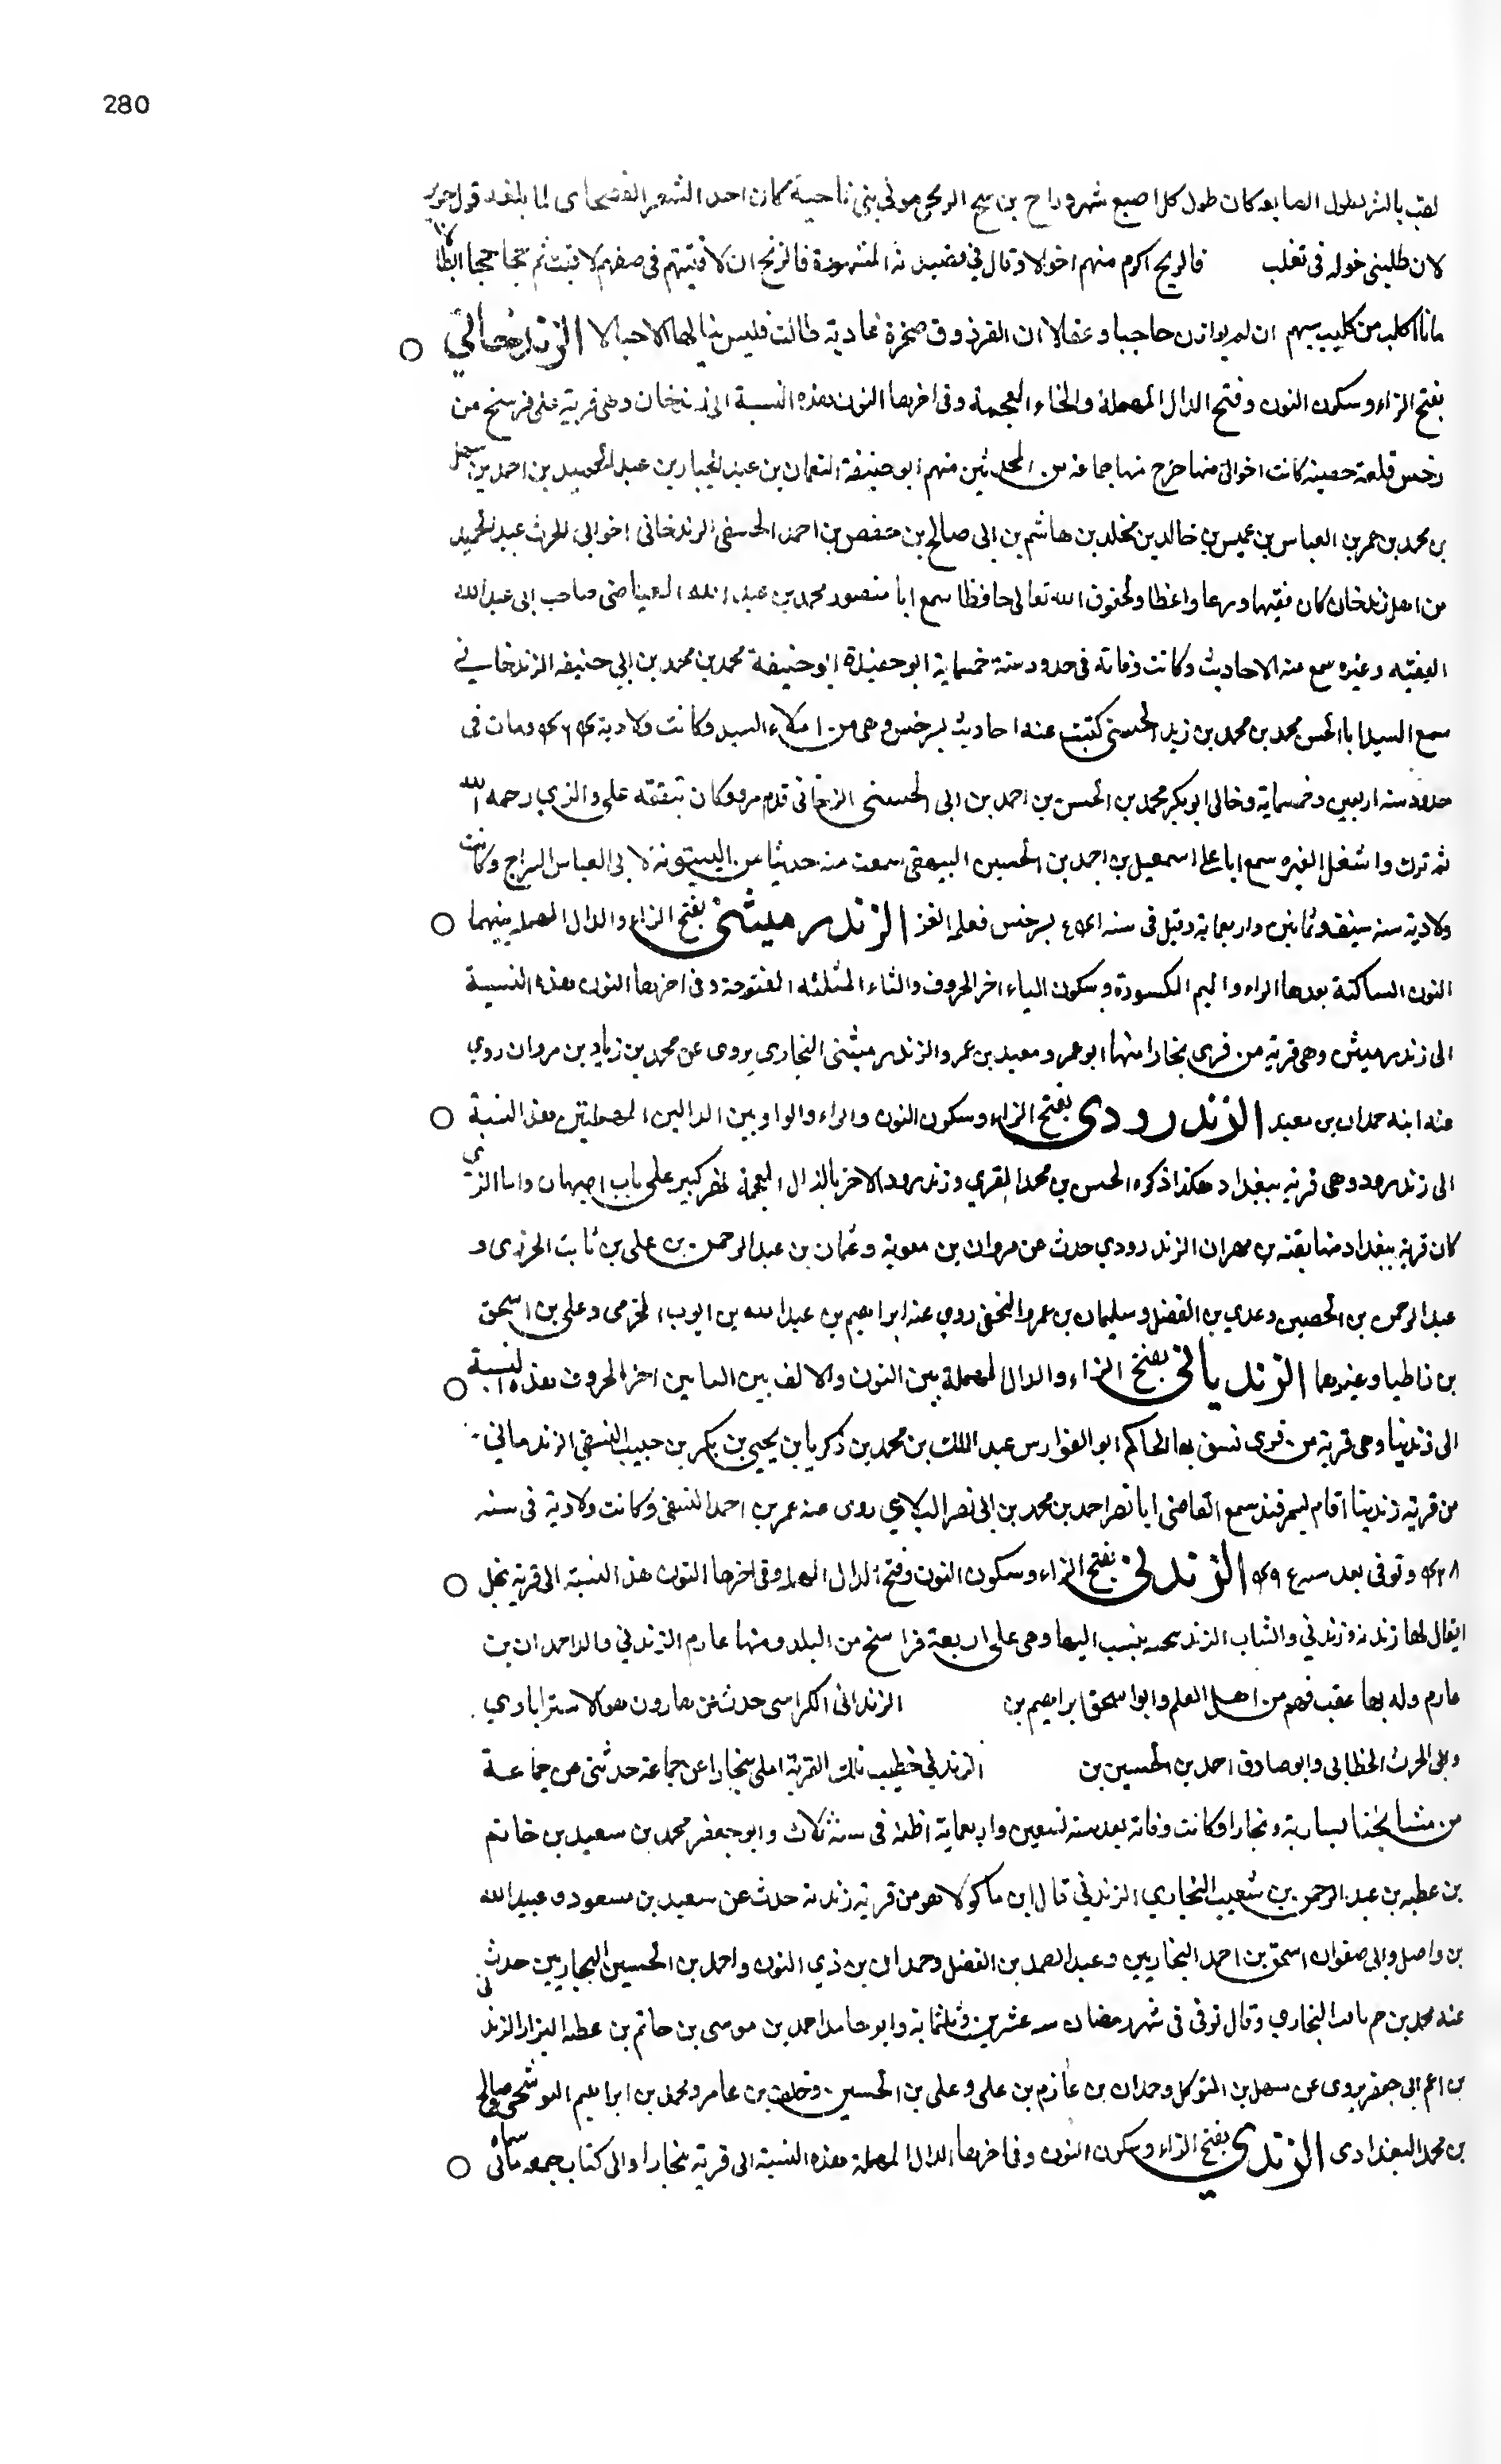 280
لقب بالنر لطول اصابعه كان طول كل اصبع شبر ورباح بن سبح الزنجي مولى بني ناجية كان احد الشعرا الفصحاى لما بلغه قول جرير
لان طلبنى خوله فى تغلب فالزنج اكرم منهم اخوالا وقال في قصيدته المشهورة فالزنج ان لاقيتهم فى صفهم لاقيت ثم جحاجحا ابطالا
ما بال كلب من كليب سبهم ان لم يوازن حاجبا وعقالا ان الفرزدق صخرة عادية طالت فليس ينالها الاجبالا الزندخاني
بفتح الزاء وسكون النون وفتح الدال المهملة والخاء المعجمة وفى اخرها النون هذه النسبة الى زندخان وهى قرية على فرسخ من
رخس قلعة حصينة كانت اخوالى منها خرج منها جماعة من المحدثين منهم ابو حنيفة النعمان بن عبد الجبار بن عبد الحميد بن احمد بن
بن محمد بن عمر بن العباس بن عميس بن خالد بن مخلد بن هاشم بن ابى صالح بن حفص بن احمد الحنفى الزندخانى اخو ابى الحرث عبد الحميد
من اهل زندخان كان فقيها ورعا واعظا ولحقوق الله تعالى حافظا سمع ابا منصور محمد بن عبد الله العياضى صاحب ابى عبد الله
الفقيه وغيره سمع منه الاحاديث وكانت وفاته فى حدود سنة خمسماية ابو حنيفة محمد بن محمد بن ابي حنيفه الزندخاني
سمع السيد ابا الحسن محمد بن محمد بن زيد الحسنى كتبت عنه احاديث بسرخس وهى من املاء السيد وكانت ولادته ومات فى
حدود سنه اربعين وخمسماية وخالى ابو بكر محمد بن الحسن بن احمد بن ابى الحسنى الزنخانى قدم مرو وكان تفقه على والدي رحمه الله
ثم ترك واشتغل بغيره سمع ابا على اسمعيل بن احمد بن الحسين البيهقى سمعت منه حديثا من البيتوتة لابى العباس السراج وكانت
ولادته سنه نيف وثمانين واربعماية وقتل فى سنه بسرخس فعله الغز الزندرميثنى بفتح الزاء والدال المهمله بينهما
النون الساكنة بعدها الراء والميم المكسورة وسكون الياء اخر الحروف والثاء المثلثه المفتوحة وفى اخرها النون هذه النسبة
الى زندرميثن وهى قرية من قرى بخارا منها ابو عمرو معبد بن عمرو الزندرميثنى البخارى يروى عن محمد بن زياد بن مروان روي
عنه ابنه حمدان بن معبد الزندرودى بفتح الزاء وسكون النون والراء والواو بين الدالين المهملتين هذه النسبة
الى زندرود وهى قرية ببغداد هكذا ذكره الحسن بن محمد المقري وزندروذ الاخر بالذال المعجمة نهر كبير على باب اصبهان واما الذي
كان قرية ببغداد منها بقنه بن مهران الزندرودي حدث عن مروان بن معوية وعثمان بن عبد الرحمن بن على بن ثابت الجزرى و
عبد الرحمن بن الحصين وعدي بن الفضل وسليمان بن عمرو النخعى روي عنه ابراهيم بن عبد الله بن ايوب المخرمى وعلى بن اسحق
بن زاطيا وغيرهما الزندياني بفتح الزاء والدال المهملة بين النون والالف بين اليا بين اخر الحروف هذه النسبة
الى زندينا وهى قرية من قرى نسف بها الحاكم ابو الفوارس عبد الملك بن محمد بن زكريا بن يحيى بن بكر بن حبيب النسفي الزنديانى
من قرية زندينا اقام بسمرقند سمع القاضى ابا نصر احمد بن محمد بن ابى نصر البلادي روى عنه عمر بن احمد النسفى وكانت ولادته فى سنه
وتوفى بعد سنه الزندنى بفتح الزاء وسكون النون وفتح الدال المهملة وفى اخرها النون هذه النسبة الى قرية بخارا
يقال لها زندنه وزندنى والثياب الزندنيجيه ينسب اليها وهى على اربعة فراسخ من البلد ومنها عارم الزندنى والد احمد ان بن
عارم وله بها عقب فهم من اهل العلم وابو اسحق ابراهيم بن الزندانى الكراسى حدث عن هارون هو الاستراباذي
وابى الحرث الخطابى وابو صادق احمد بن الحسين بن الزندني خطيب تلك القرية املى ببخارا عن جماعة حدثنى عن جماعة
من مشايخنا بساريه وبخارا وكانت وفاته بعد سنه تسعين واربعماية اظنه فى سنة ثلاث وابو جعفر محمد بن سعيد بن حاتم
بن عطيه بن عبد الرحمن بن شعيب البخاري الزندني قال ابن ماكولا هو من قرية زندنه حدث عن سعيد بن مسعود وعبيد الله
بن واصل وابى صفوان اسحق بن احمد البخاريين وعبد الصمد بن الفضل وحمدان بن ذي النون واحمد بن الحسين البخاريين حدث
عنه محمد بن البخاري وقال توفى فى شهر رمضان سنه عشرين وثلثماية وابو حامد احمد بن موسى بن حاتم بن عطيه البزار الزندنى
بن اعم ابى جعفر يروى عن سهل بن المتوكل وحمدان بن عارم بن على وعلى بن الحسين وخلف بن عامر ومحمد بن ابراهيم البوشنجى وصالح
بن محمد البغدادى الزندي بفتح الزاء وسكون النون وفى اخرها الدال المهملة هذه النسبة الى قرية ببخارا والى كتاب جمعه مانى سماه